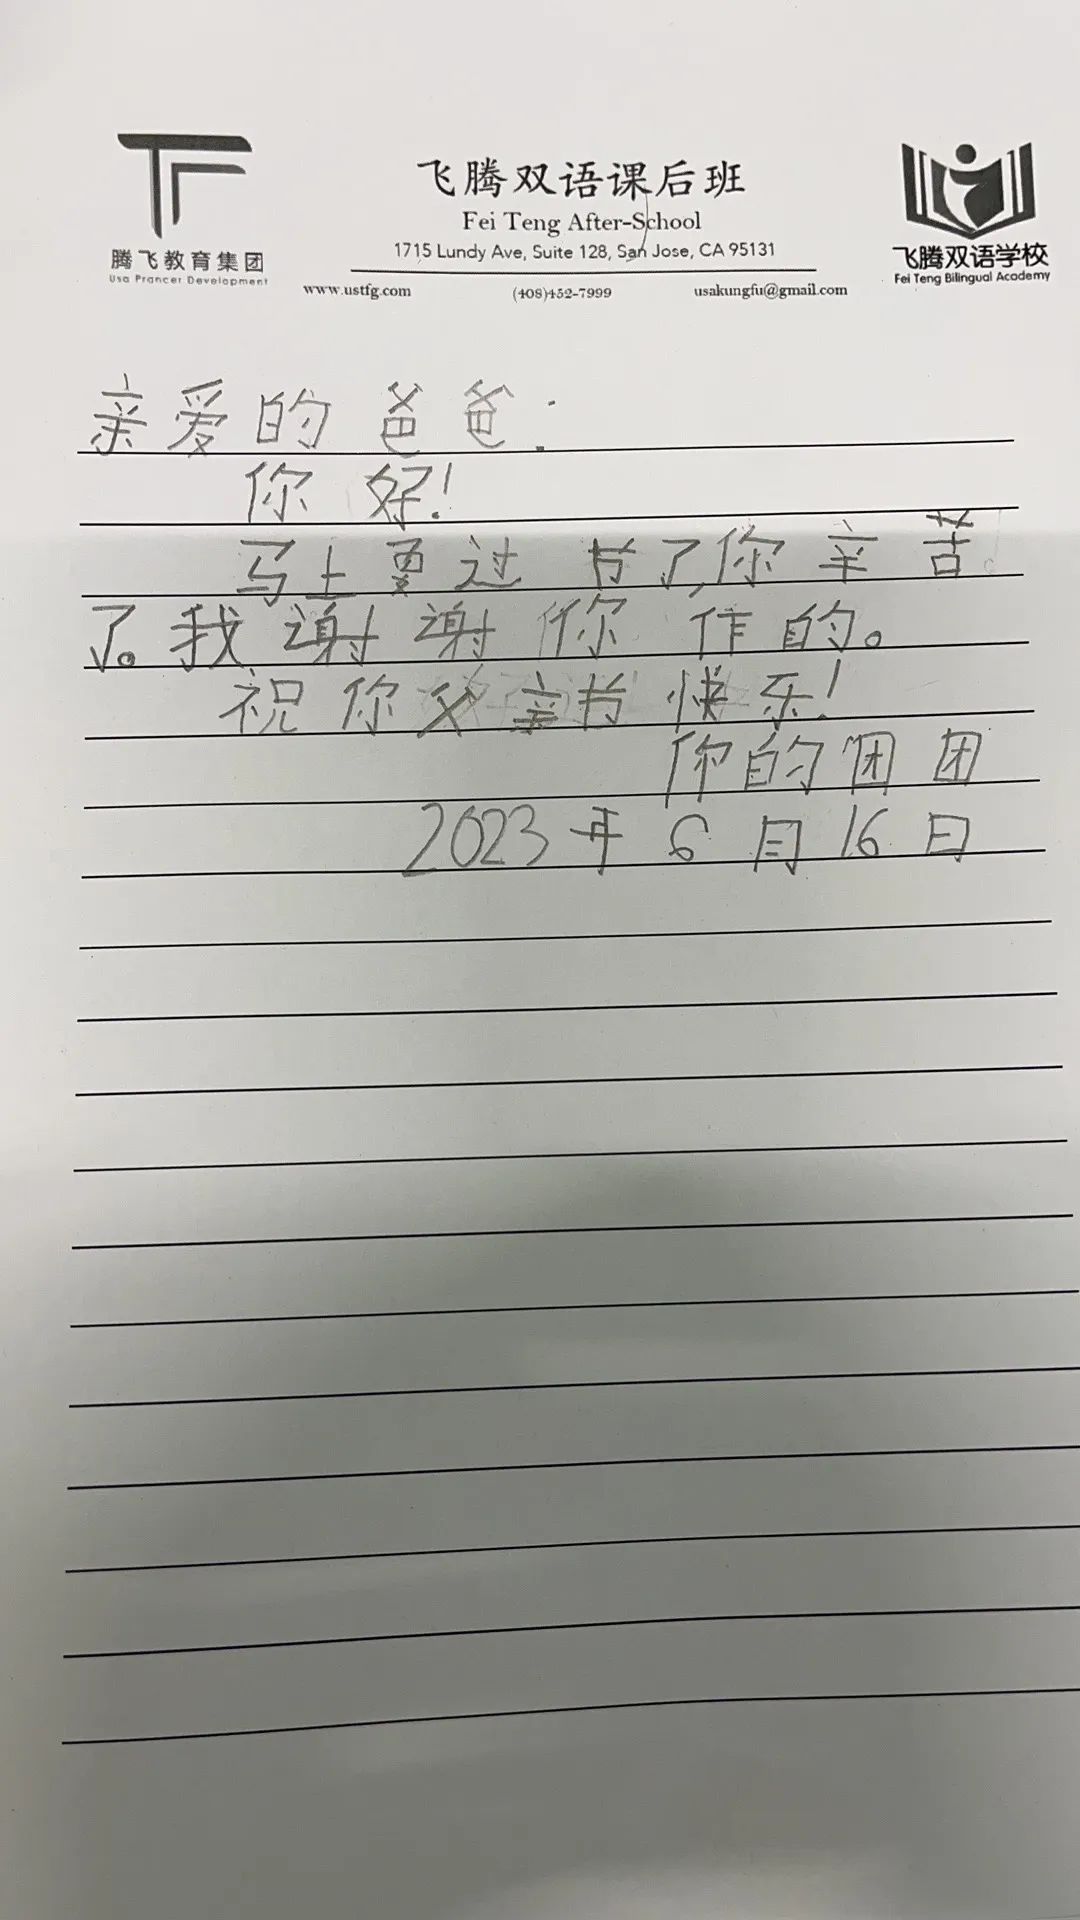 飞腾双语课后班
Fei Teng After-School
1715 Lundy Ave, Suite 128, San Jose, CA 95131
腾飞教育集团
Usa Prancer Development
www.ustfg.com
(408)452-7999
usakungfu@gmail.com
飞腾双语学校
Fei Teng Bilingual Academy
亲爱的爸爸:
你好!
马上要过节了,你辛苦
了。我谢谢你作的。
祝你父亲节快乐!
你的团团
2023年6月16日